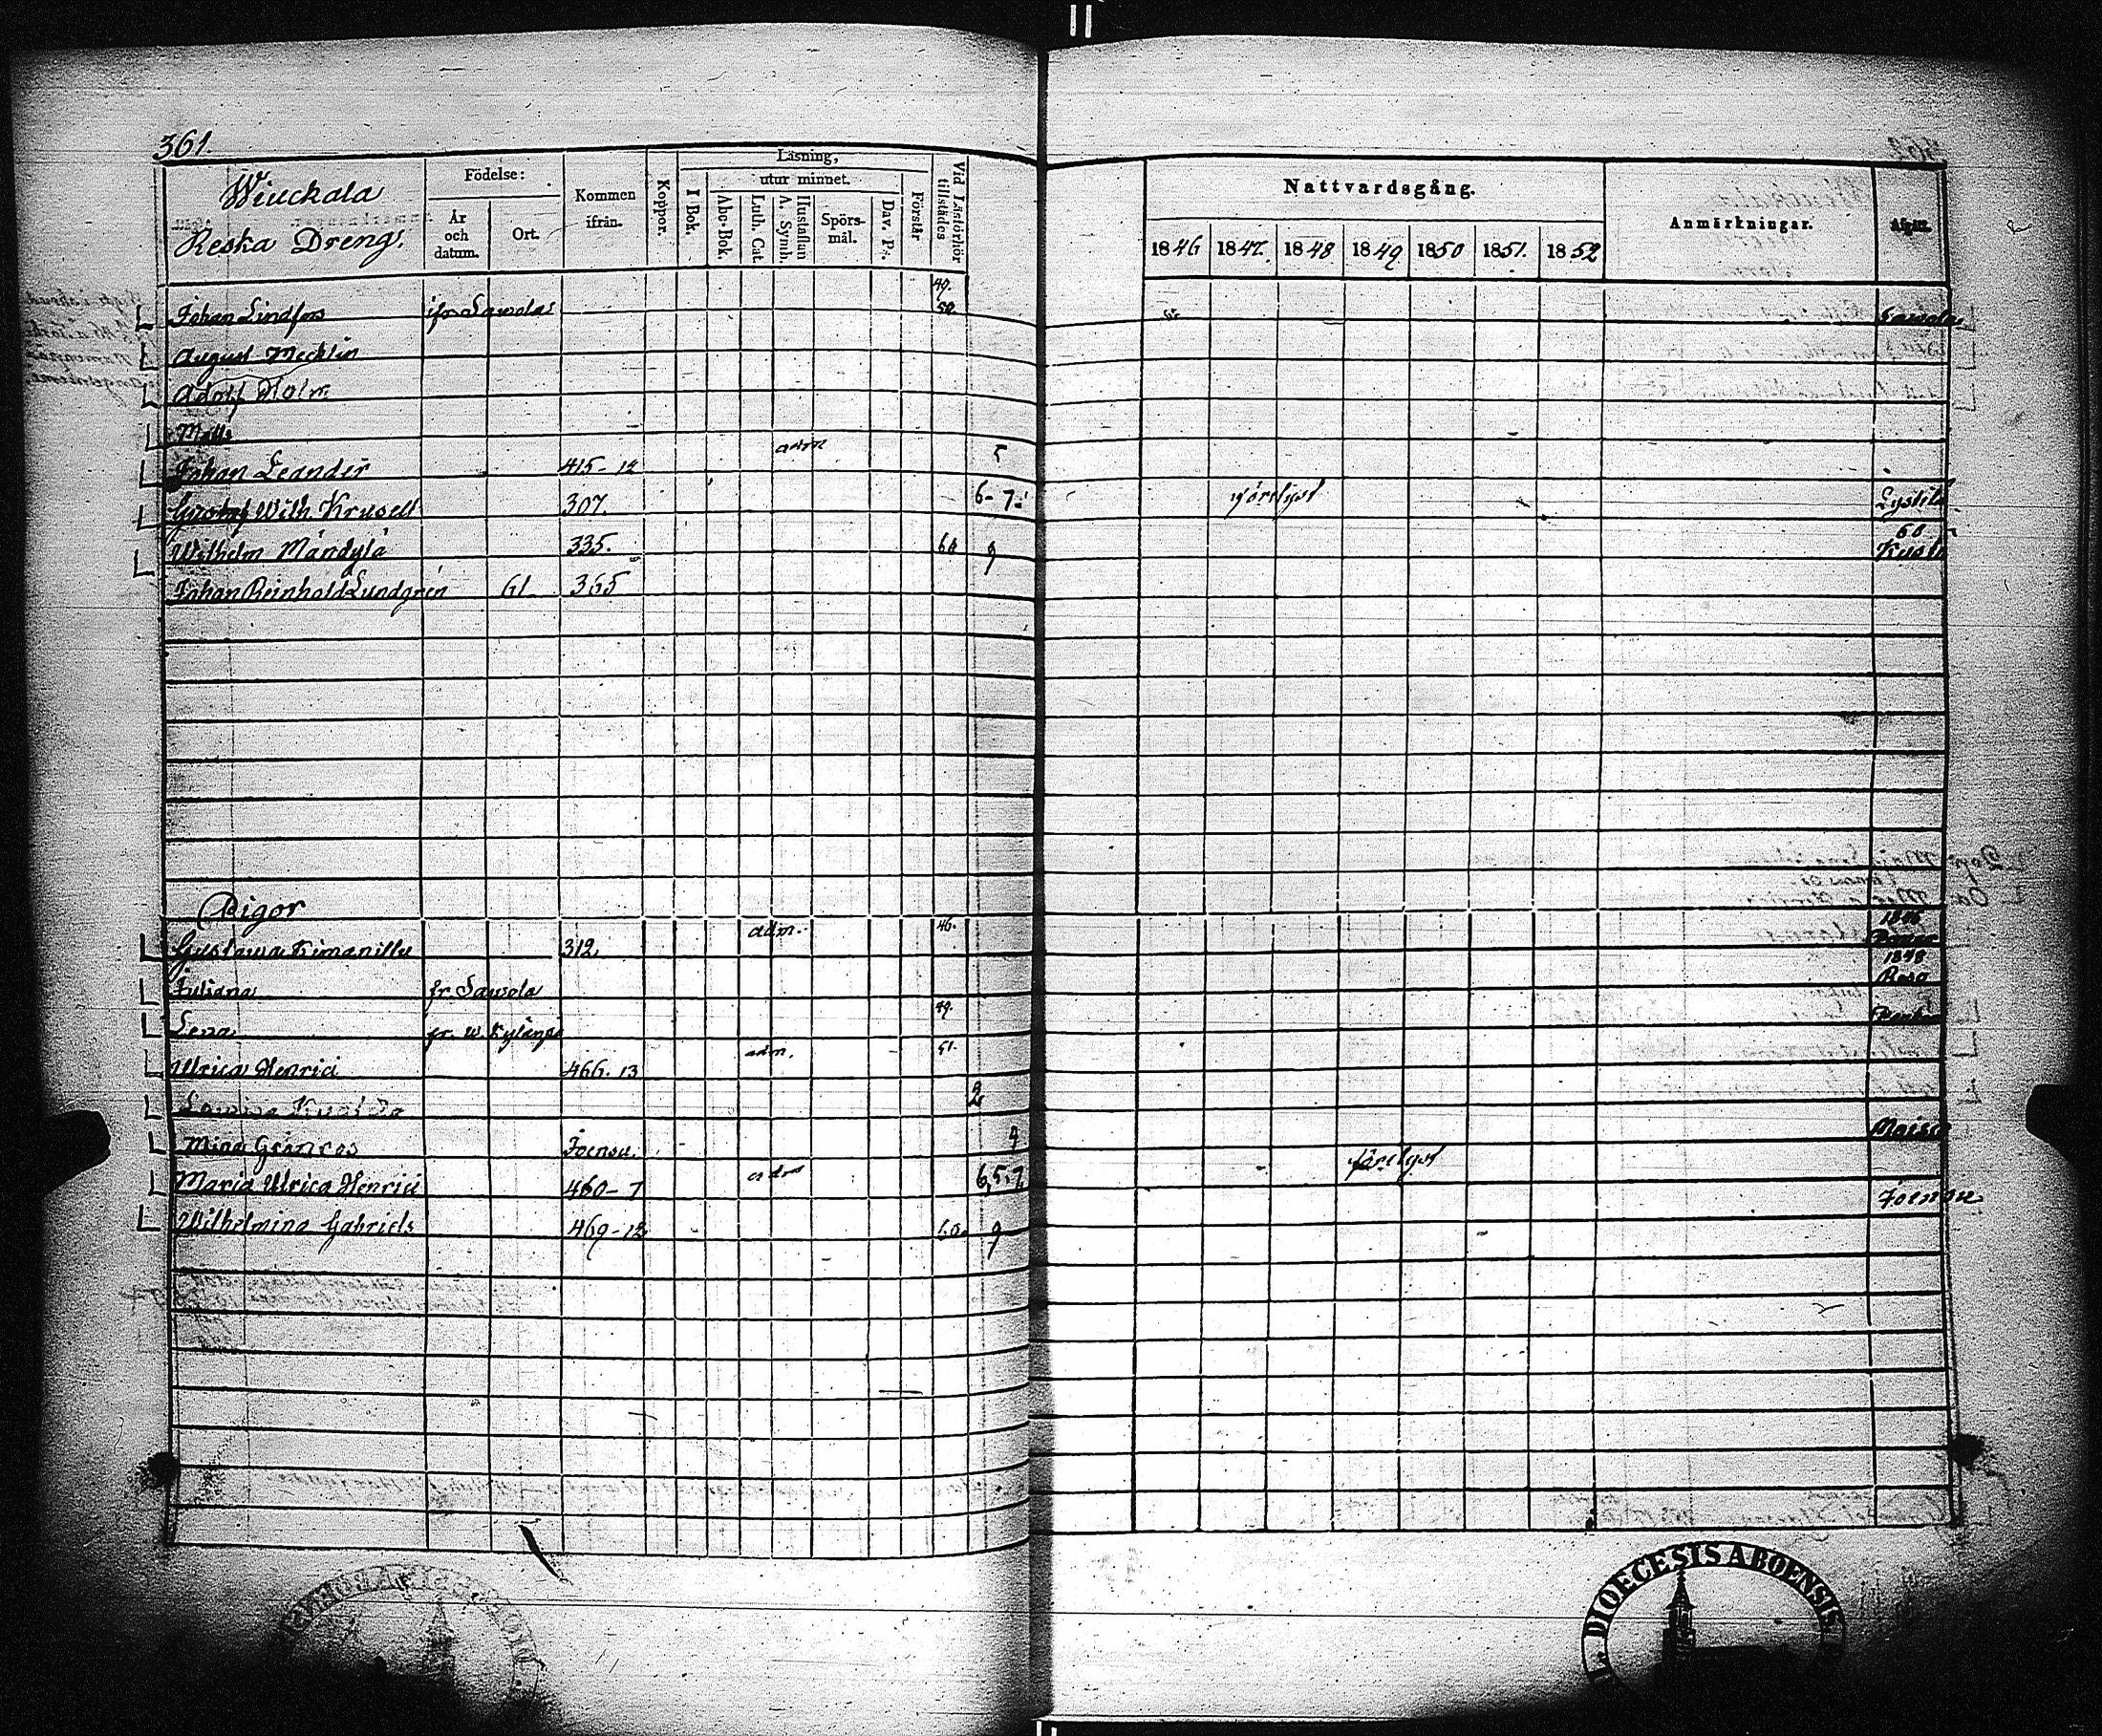 361.
Wiuckala
Reska Drengs.
Födelse:
År och datum.
Ort.
Kommen ifrån.
Koppor.
Läsning,
utur minnet.
I Bok.
Abc-Bok.
Luth. Cat.
Hustaflan A. Symb.
Spörsmål.
Dav. Ps.
Förstår
Vid Läsförhör tillstädes
Nattvardsgång.
1846 1847. 1848 1849 1850 1851. 1852
Anmärkningar.
Afgått.
49.
Johan Lindfors ifrn Sawola 50. Sawola
August Mecklin
Adolf Holm
Matts
Johan Leander 415-12 adm 5
Gustaf Wilh. Krusell 307. 6-7 förlyst
Wilhelm Mändylä 335. 60 9 60
Johan Reinhold Lundgrén 61 365
Pigor
Gustawa Simanillu 312. adm. 46. 1846
Juliana fr. Sawola 1848
Lena fr. W. 49.
Ulrica Henrici 466.13 adm. 51.
2
Mina Joensu. 9
Maria Ulrica Henrici 460-7 adm 6,5,7 förelyst
Wilhelmina Gabriels 469-12 60. 9 Joensu
DIOECESIS ABOENSIS